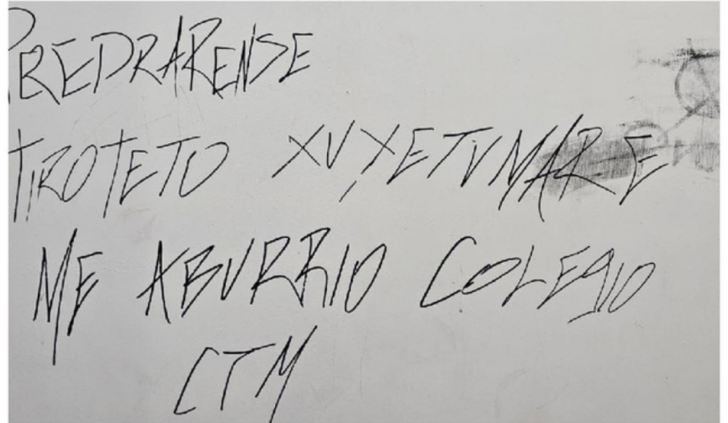 PREDRARENSE
TIROTETO XUXETUMARE
ME ABURRIO COLEGIO
CTM